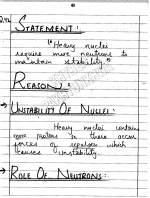 STATEMENT:
"Heavy nuclei
require more neutrons to
maintain stability."
REASON:
→ UNSTABILITY OF NUCLEI:
Heavy nuclei contain
more protons so there occur
forces of repulsion which
causes unstability
→ ROLE OF NEUTRONS: